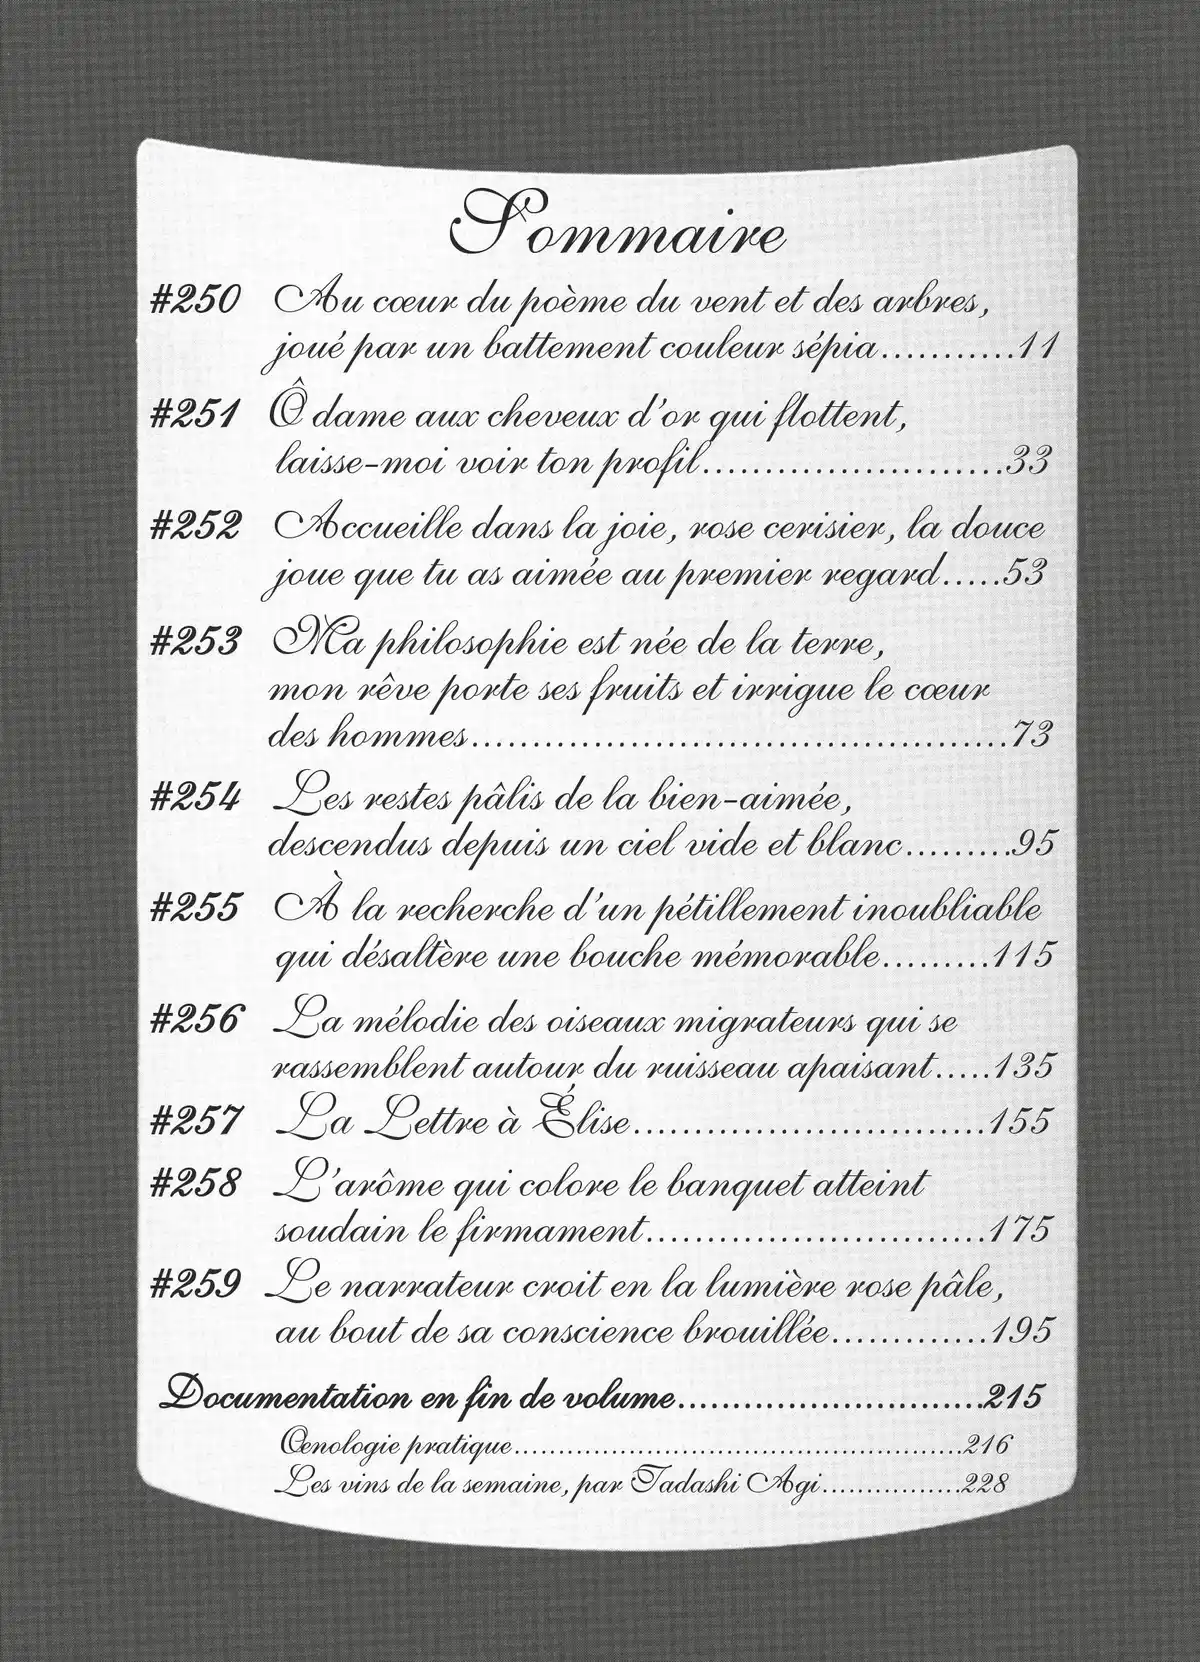 Sommaire
#250 Au cœur du poème du vent et des arbres,
joué par un battement couleur sépia...........11
#251 Ô dame aux cheveux d'or qui flottent,
laisse-moi voir ton profil........................33
#252 Accueille dans la joie, rose cerisier, la douce
joue que tu as aimée au premier regard.....53
#253 Ma philosophie est née de la terre,
mon rêve porte ses fruits et irrigue le cœur
des hommes............................................73
#254 Les restes pâlis de la bien-aimée,
descendus depuis un ciel vide et blanc.........95
#255 À la recherche d'un pétillement inoubliable
qui désaltère une bouche mémorable.........115
#256 La mélodie des oiseaux migrateurs qui se
rassemblent autour du ruisseau apaisant.....135
#257 La Lettre à Élise.............................155
#258 L'arôme qui colore le banquet atteint
soudain le firmament............................175
#259 Le narrateur croit en la lumière rose pâle,
au bout de sa conscience brouillée.............195
Documentation en fin de volume.............................215
Œnologie pratique....................................................216
Les vins de la semaine, par Tadashi Agi.................228